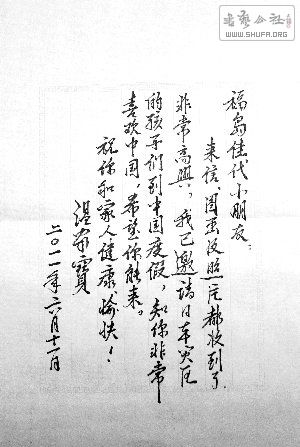 福岛佳代小朋友:
来信、图画及照片都收到了,
非常高兴,我已邀请日本灾区
的孩子们到中国度假,知你非常
喜欢中国,希望你能来。
祝你和家人健康、愉快!
温家宝
二〇一一年六月十一日
书艺公社
WWW.SHUFA.ORG